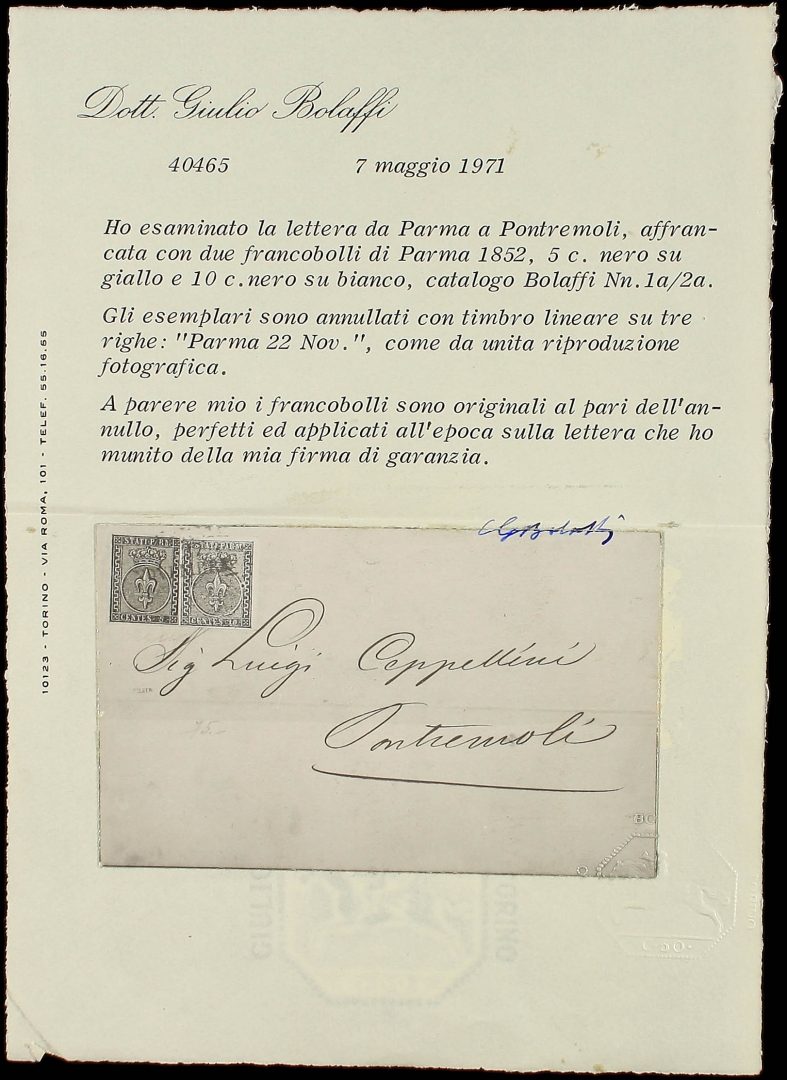 Dott. Giulio Bolaffi
40465 7 maggio 1971
Ho esaminato la lettera da Parma a Pontremoli, affran-
cata con due francobolli di Parma 1852, 5 c. nero su
giallo e 10 c.nero su bianco, catalogo Bolaffi Nn.1a/2a.
Gli esemplari sono annullati con timbro lineare su tre
righe: "Parma 22 Nov.", come da unita riproduzione
fotografica.
A parere mio i francobolli sono originali al pari dell'an-
nullo, perfetti ed applicati all'epoca sulla lettera che ho
munito della mia firma di garanzia.
10123 - TORINO - VIA ROMA, 101 - TELEF. 55.16.55
CENTES. 5
CENTES. 10
Sig Luigi Coppellini
Pontremoli
GIULIO
TORINO